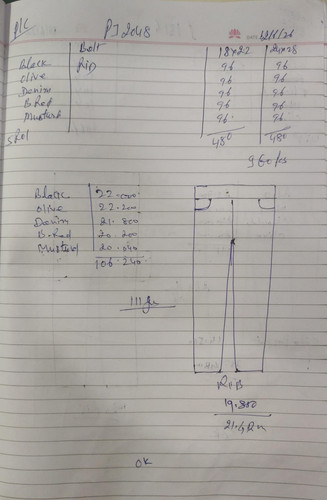 P/C PJ 2048
Bolt 18x22 24x28
Black Rib 96 96
olive 96 96
Denim 96 96
B.Red 96 96
Mustard 96 96
5 Rol 480 480
960 Pcs
Black 22.000
olive 22.200
Denim 21.800
B.Red 20.200
Mustard 20.040
106.240
111 gm
RIB
19.800
OK